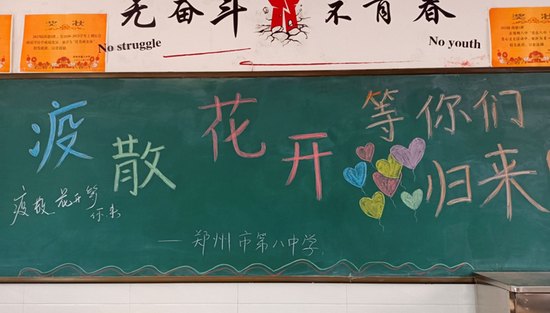 奖状
无奋斗
不青春
奖状
No struggle
No youth
疫散花开
等你们
归来
疫散花开等
你来
——郑州市第八中学